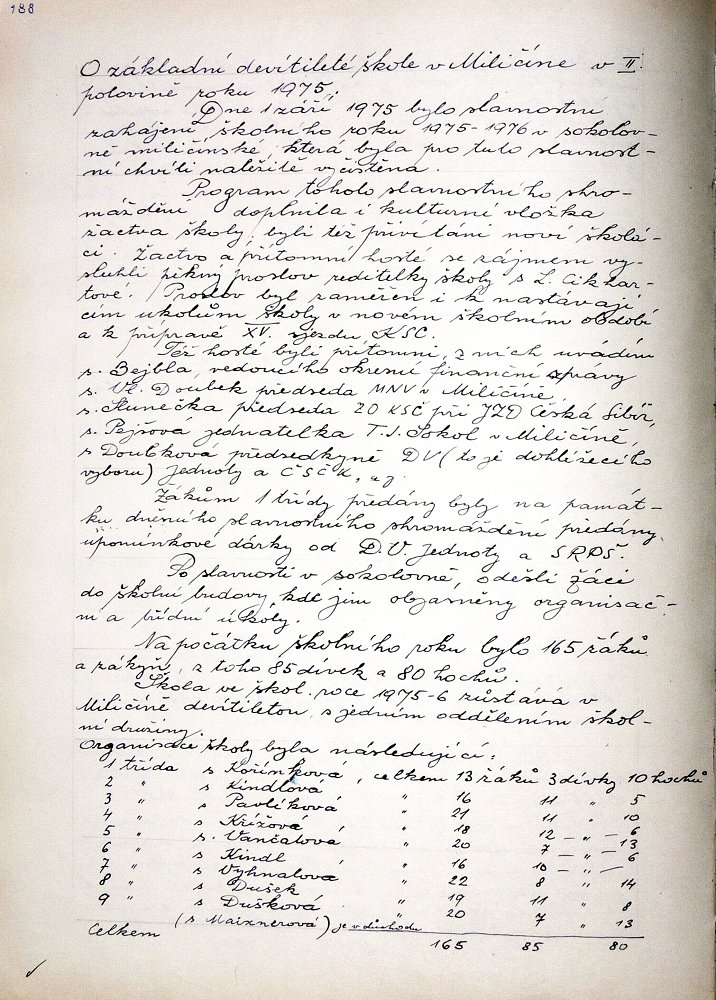 188
O základní devítileté škole v Miličíně v II.
polovině roku 1975.:
Dne 1 září 1975 bylo slavnostní
zahájení školního roku 1975-1976 v sokolov-
ně miličínské, která byla pro tuto slavnost-
ní chvíli náležitě vyčištěna.
Program tohoto slavnostního shro-
máždění doplnila i kulturní vložka
žactva školy, byli též přivítáni noví školá-
ci. Žactvo a přítomní hosté se zájmem vy-
slechli pěkný proslov ředitelky školy s L. Cikhar-
tové. Proslov byl zaměřen i k nastávají
cím úkolům školy v novém školním období
a k přípravě XV. sjezdu KSČ.
Též hosté byli přítomni, z nich uvádím
s. Bejbla, vedoucího okresní finanční správy
s. Vl. Doubek předseda MNV v Miličíně,
s. Slunečka předseda ZO KSČ při JZD Česká Sibiř,
s. Pejšova jednatelka T.J. Sokol v Miličíně,
s Doubková předsedkyně DV (to je dohlížecího
výboru) Jednoty a ČSČK, aj.
Žákům 1 třídy předány byly na památ-
ku dnešního slavnostního shromáždění předány
upomínkové dárky od D.V. Jednoty a SRPŠ.
Po slavnosti v sokolovně, odešli žáci
do školní budovy, kde jim objasněny organisač-
ní a třídní úkoly.
Na počátku školního roku bylo 165 žáků
a žákyň, z toho 85 dívek a 80 hochů.
Škola ve škol. roce 1975-6 zůstává v
Miličíně devítiletou, s jedním oddělením škol-
ní družiny.
Organisace školy byla následující:
1 třída s Kořínková, celkem 13 žáků 3 dívky 10 hochů
2 " s Kindlová " 16 11 " 5
3 " s Pavlíková " 21 11 " 10
4 " s Křížová " 18 12 - " - 6
5 " s. Vančatová " 20 7 - " - 13
6 " s Kindl " 16 10 - " - 6
7 " s Vyhnalová " 22 8 " 14
8 " s Dušek " 19 11 " 8
9 " s Dušková " 20 7 " 13
(s Maixnerová) je v důchodu
Celkem 165 85 80